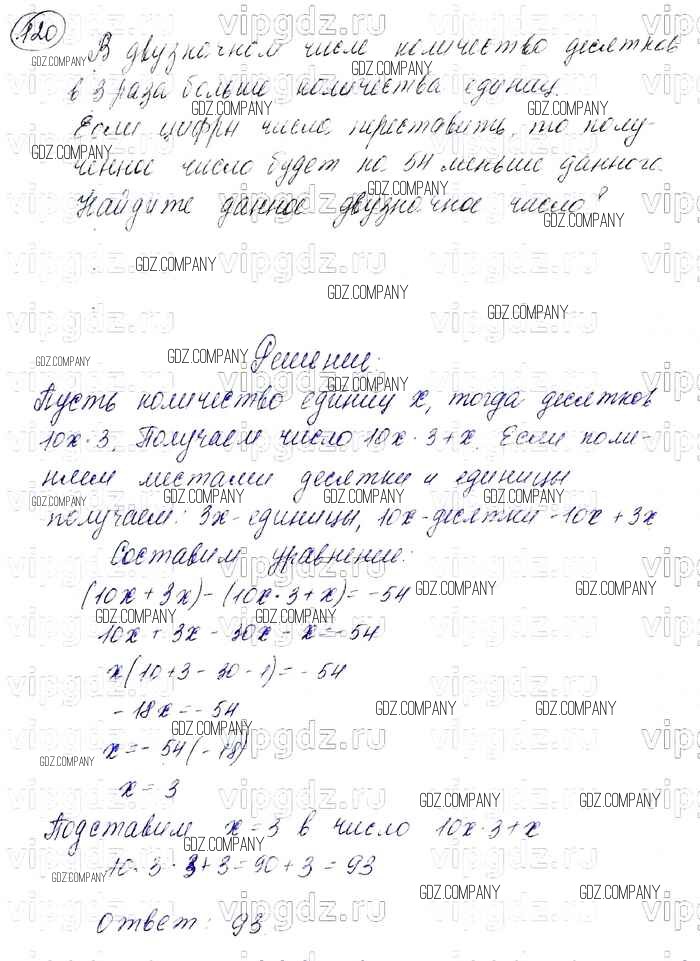 120
В двузначном числе количество десятков
в 3 раза больше количества единиц.
Если цифры числа переставить, то полу-
ченное число будет на 54 меньше данного.
Найдите данное двузначное число?
Решение:
Пусть количество единиц x, тогда десятков
10x·3. Получаем число 10x·3+x. Если поме-
няем местами десятки и единицы
получаем: 3x-единицы, 10x-десятки-10x+3x
Составим уравнение:
(10x+3x)-(10x·3+x)=-54
10x+3x-30x-x=-54
x(10+3-30-1)=-54
-18x=-54
x=-54(-18)
x=3
Подставим x=3 в число 10x·3+x
10·3·3+3=90+3=93
Ответ: 93
vipgdz.ru
GDZ.COMPANY